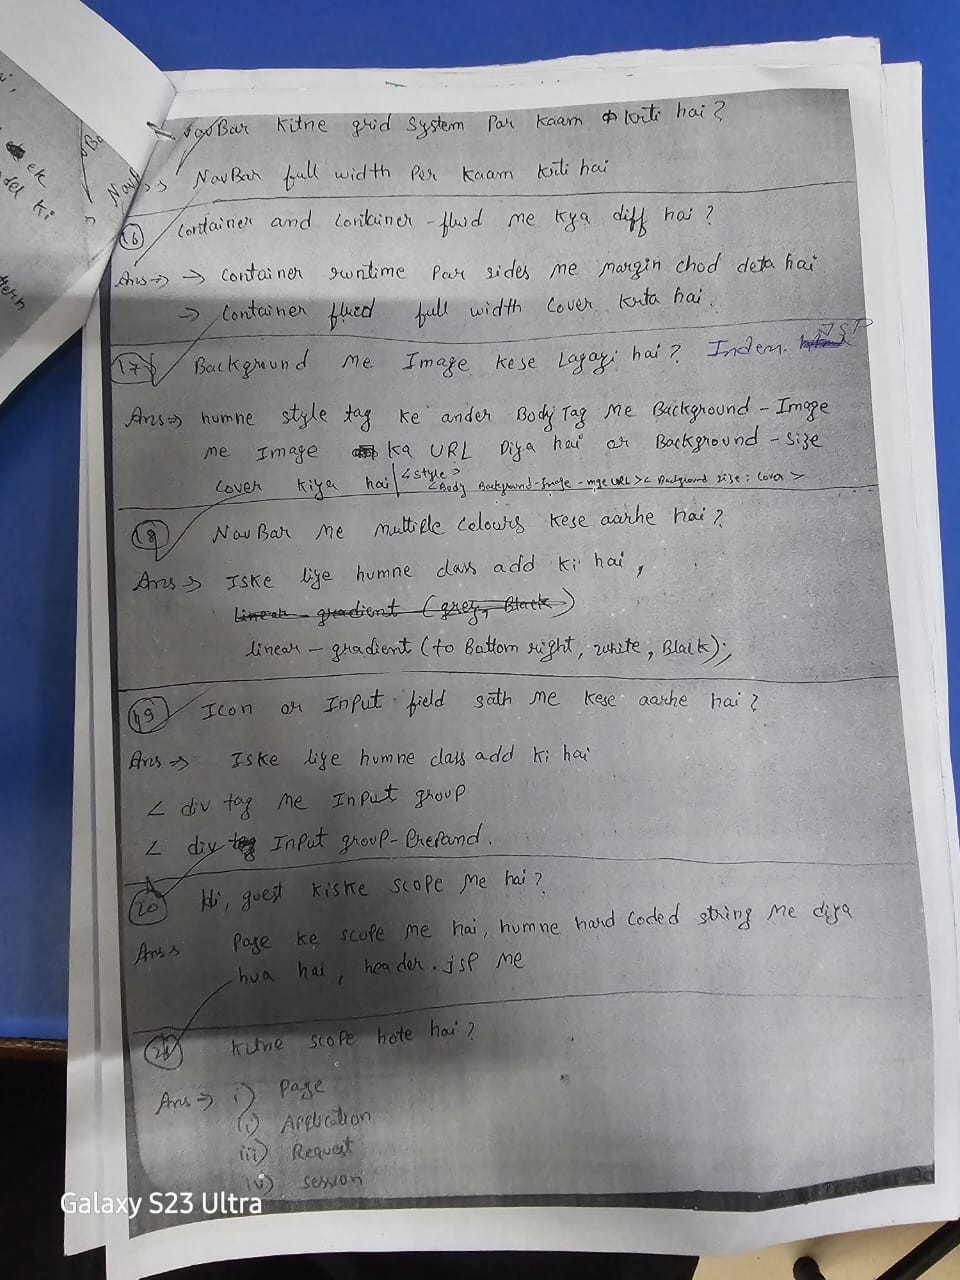 NavBar Kitne grid System Par Kaam krti hai ?
NavBar full width Per Kaam krti hai
16 Container and container-fluid me kya diff hai ?
Ans => → Container runtime Par sides me margin chod deta hai
=> Container fluid full width Cover Krta hai.
17 Background Me Image Kese Lagayi hai ? Index. JSP
Ans => humne style tag Ke ander Body Tag Me Background - Image
me Image Ka URL Diya hai or Background - size
cover Kiya hai <style>
<Body Background-Image - mge URL >< Background size : cover >
18 NavBar Me multiple Colours Kese aarhe hai ?
Ans => Iske liye humne class add Ki hai ,
Linear - gradient ( grey, Black )
linear - gradient ( to Bottom right, white, Black);
19 Icon or InPut field sath Me Kese aarhe hai ?
Ans => Iske liye humne class add Ki hai
< div tag Me InPut group
< div tag InPut group-Prepand.
20 Hi, guest Kiske scope Me hai ?
Ans => Page Ke scope me hai, humne hard coded string Me diya
hua hai , header.jsp Me
21 Kitne scope hote hai ?
Ans => i) Page
ii) Application
iii) Request
iv) session
Galaxy S23 Ultra